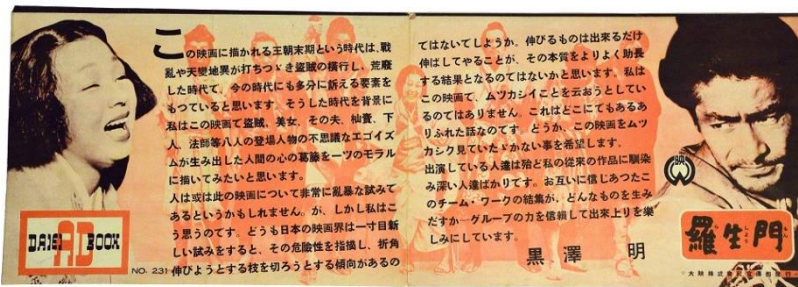 この映画に描かれる王朝末期という時代は、戰
亂や天變地異が打ちつゞき盗賊の横行し、荒廢
した時代で、今の時代にも多分に訴える要素を
もつていると思います。そうした時代を背景に
私はこの映画で盗賊、美女、その夫、杣賣、下
人、法師等八人の登場人物の不思議なエゴイズ
ムが生み出した人間の心の葛藤を一ツのモラル
に描いてみたいと思います。
人は或は此の映画について非常に乱暴な試みで
あるというかもしれません。が、しかし私はこ
う思うのです。どうも日本の映画界は一寸目新
しい試みをすると、その危險性を指摘し、折角
伸びようとする枝を切ろうとする傾向があるの
ではないでしようか。伸びるものは出来るだけ
伸ばしてやることが、その本質をよりよく助長
する結果となるのではないかと思います。私は
この映画で、ムツカシイことを云おうとしてい
るのではありません。これはどこにでもあるあ
りふれた話なのです。どうか、この映画をムツ
カシク見ていたゞかない事を希望します。
出演している人達は殆ど私の従来の作品に馴染
み深い人達ばかりです。お互いに信じあつたこ
のチーム・ワークの結集が、どんなものを生み
だすか—グループの力を信頼して出来上りを楽
しみにしています。
黒澤 明
DAIEI AD BOOK
NO. 231
映
羅生門
らしようもん
大映株式會社宣傳部發行